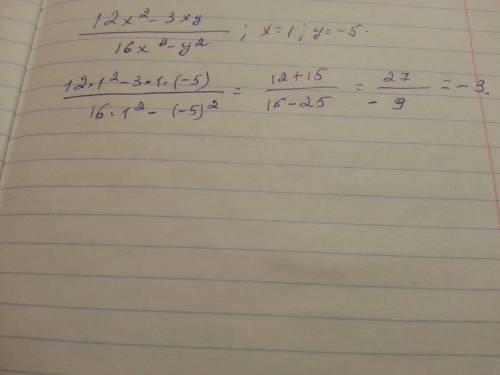 (12x² - 3xy)/(16x² - y²) ; x=1; y=-5.
(12·1² - 3·1·(-5))/(16·1² - (-5)²) = (12+15)/(16-25) = 27/(-9) = -3.